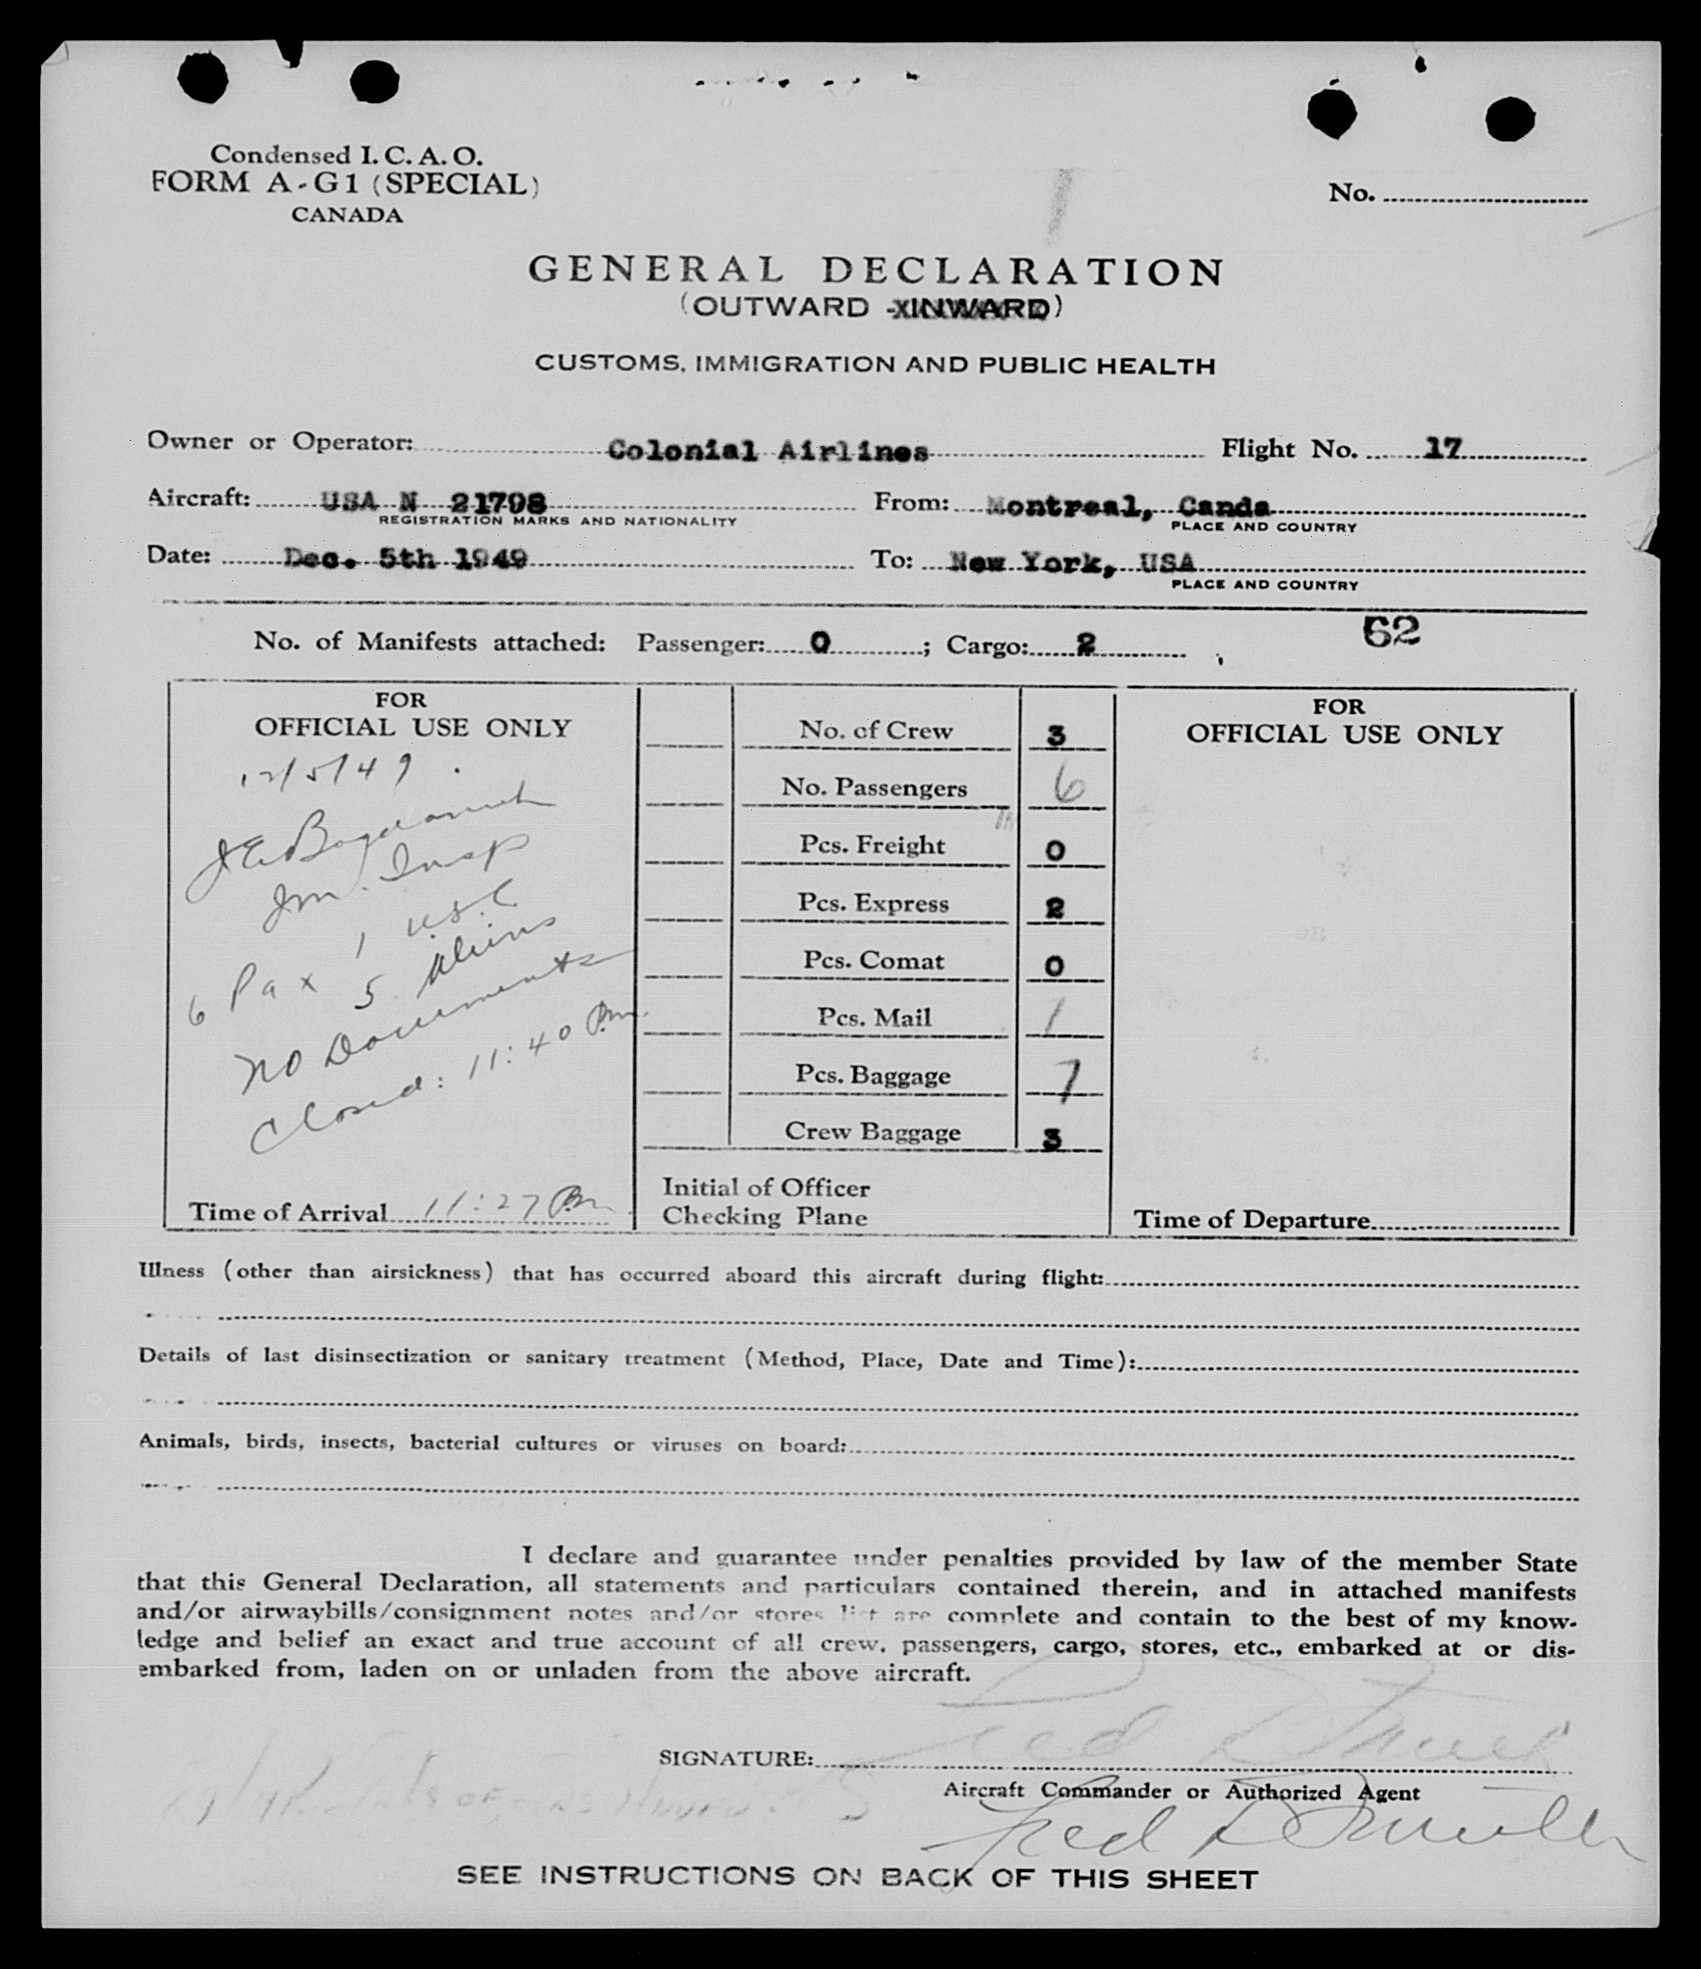 Condensed I. C. A. O.
FORM A-G1 (SPECIAL)
CANADA
No.
GENERAL DECLARATION
(OUTWARD - INWARD)
CUSTOMS, IMMIGRATION AND PUBLIC HEALTH
Owner or Operator: Colonial Airlines Flight No. 17
Aircraft: USA N 21798 From: Montreal, Canda
REGISTRATION MARKS AND NATIONALITY PLACE AND COUNTRY
Date: Dec. 5th 1949 To: New York, USA
PLACE AND COUNTRY
62
No. of Manifests attached: Passenger: 0 ; Cargo: 2
FOR
OFFICIAL USE ONLY
12/5/49
Im. Insp
6 Pax 1 USC
5 Aliens
No Documents
Closed: 11:40 Pm.
Time of Arrival 11:27 Pm
No. of Crew 3
No. Passengers 6
Pcs. Freight 0
Pcs. Express 2
Pcs. Comat 0
Pcs. Mail 1
Pcs. Baggage 7
Crew Baggage 3
Initial of Officer
Checking Plane
FOR
OFFICIAL USE ONLY
Time of Departure
Illness (other than airsickness) that has occurred aboard this aircraft during flight:
Details of last disinsectization or sanitary treatment (Method, Place, Date and Time):
Animals, birds, insects, bacterial cultures or viruses on board:
I declare and guarantee under penalties provided by law of the member State
that this General Declaration, all statements and particulars contained therein, and in attached manifests
and/or airwaybills/consignment notes and/or stores list are complete and contain to the best of my know-
ledge and belief an exact and true account of all crew, passengers, cargo, stores, etc., embarked at or dis-
embarked from, laden on or unladen from the above aircraft.
SIGNATURE:
Aircraft Commander or Authorized Agent
Fred
SEE INSTRUCTIONS ON BACK OF THIS SHEET